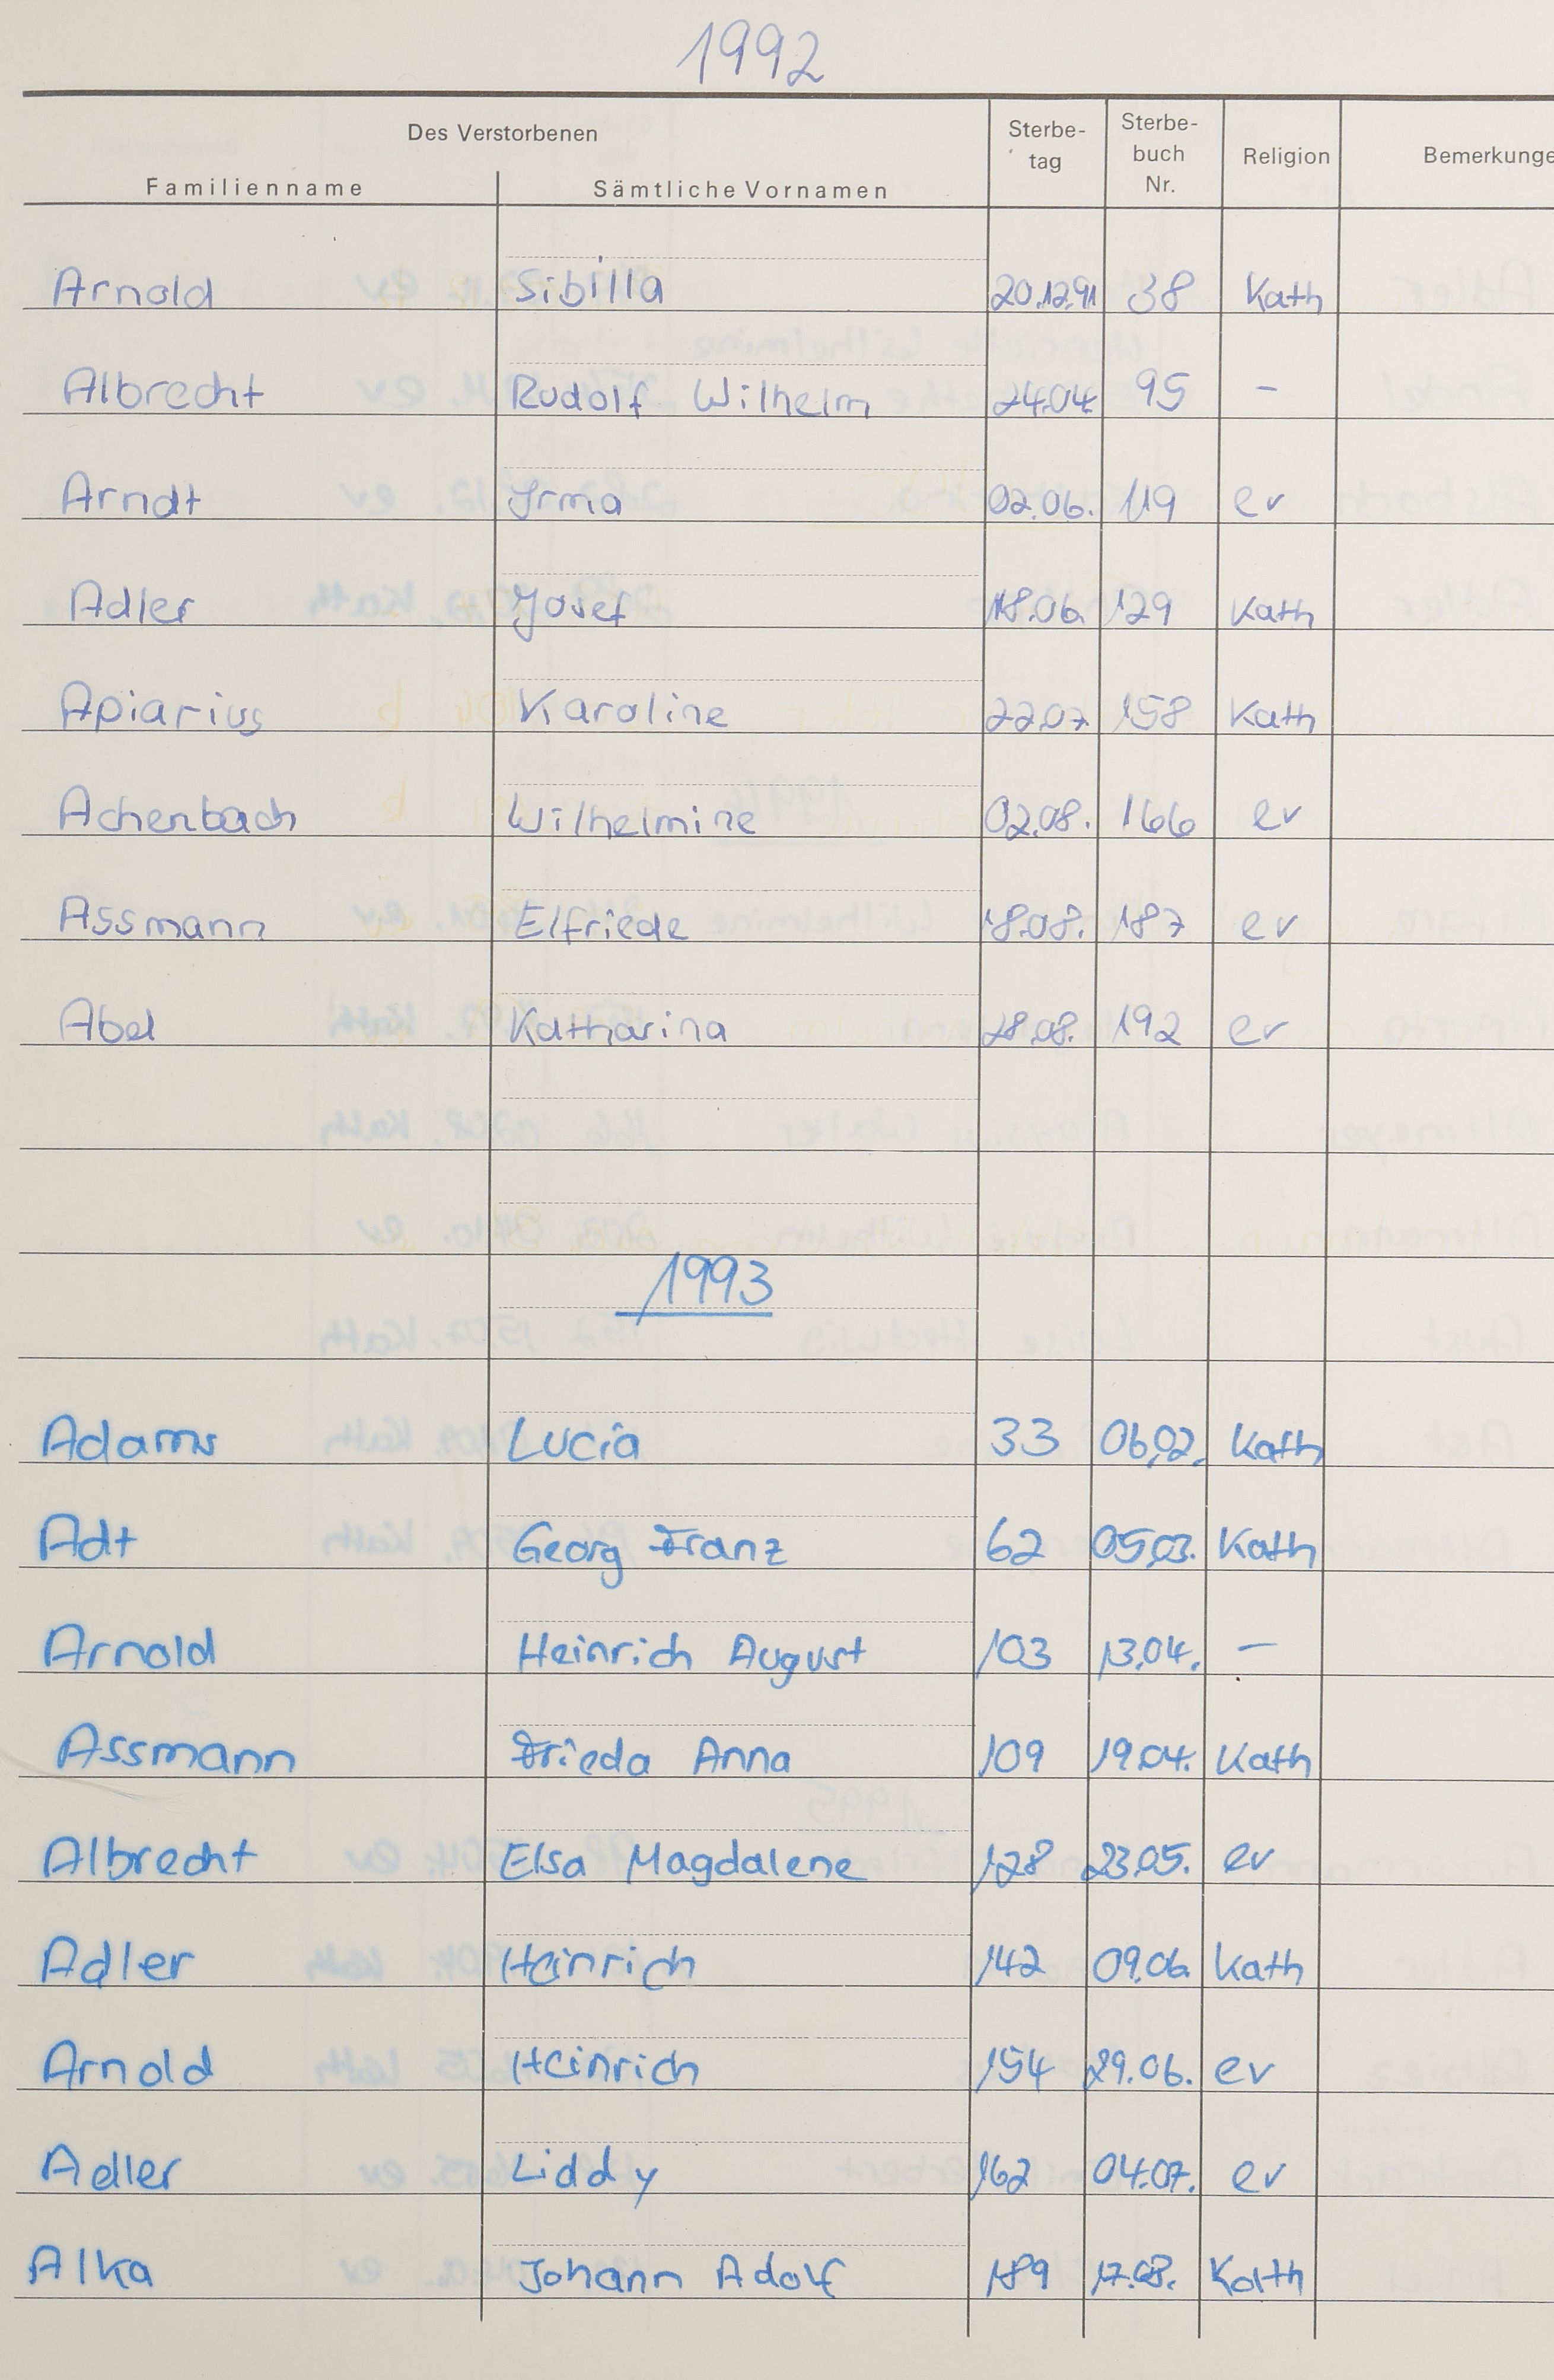 1992
Des Verstorbenen
Familienname Sämtliche Vornamen Sterbe-tag Sterbe-buch Nr. Religion Bemerkunge
Arnold Sibilla 20.12.91 38 Kath
Albrecht Rudolf Wilhelm 24.04 95 –
Arndt Irma 02.06. 119 ev
Adler Josef 18.06. 129 Kath
Apiarius Karoline 22.07. 158 Kath
Achenbach Wilhelmine 02.08. 166 ev
Assmann Elfriede 18.08. 187 ev
Abel Katharina 28.08. 192 ev
1993
Adams Lucia 33 06.02. Kath
Adt Georg Franz 62 05.03. Kath
Arnold Heinrich August 103 13.04. –
Assmann Frieda Anna 109 19.04. Kath
Albrecht Elsa Magdalene 128 23.05. ev
Adler Heinrich 142 09.06. Kath
Arnold Heinrich 154 29.06. ev
Adler Liddy 162 04.07. ev
Alka Johann Adolf 189 17.08. Kath